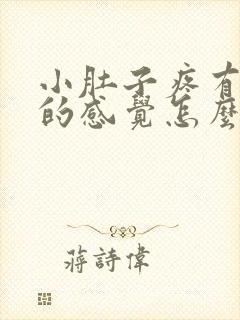 小肚子疼有
的感覺怎麼
蔣詩偉